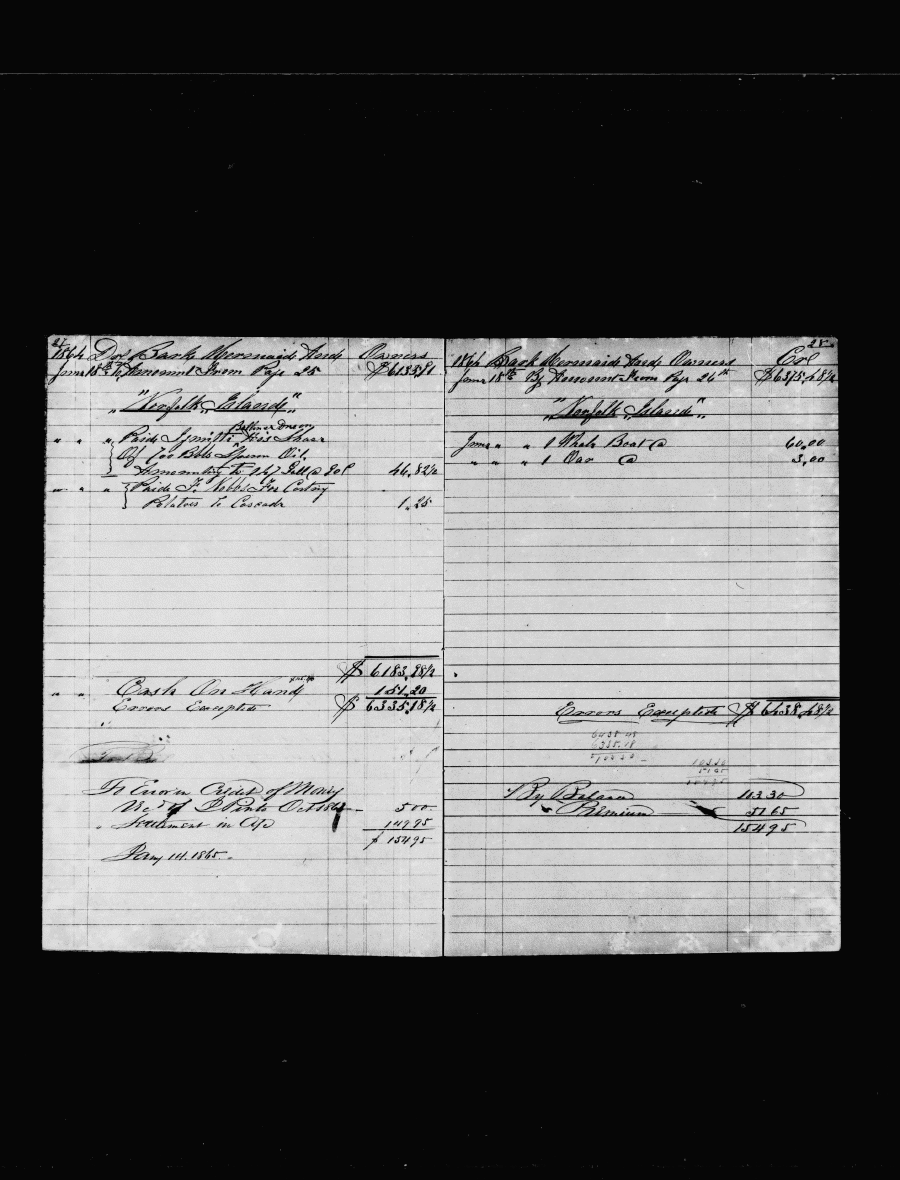 1864 Drs Bark Mermaid And Owners
June 18th To Amount From Page 25 $6135,91
"Norfolk Island"
" " " Paid his Share
Of 700 Bbls Sperm Oil.
Amounting to Gall @ 46,82½
" " " Paid F. Nobbs For Carting
Potatoes to Cascade 1,25
$ 6183,98½
" " Cash On Hand 151,20
Errors Excepted $ 6335,18½
To Error in Credit of Money
Oct 1864 500
" Settlement in 14995
$ 15495
Jany 14. 1865.
28
1864 Bark Mermaid And Owners Cr
June 18th By Amount From Page 26th $6375,48½
"Norfolk Island"
June " " 1 Whale Boat @ 60,00
" " " 1 Oar @ 3,00
Errors Excepted $ 6438,48½
6438.48
6335.18
103.30
10330
5165
15495
By Balance 10330
" Premium 5165
15495